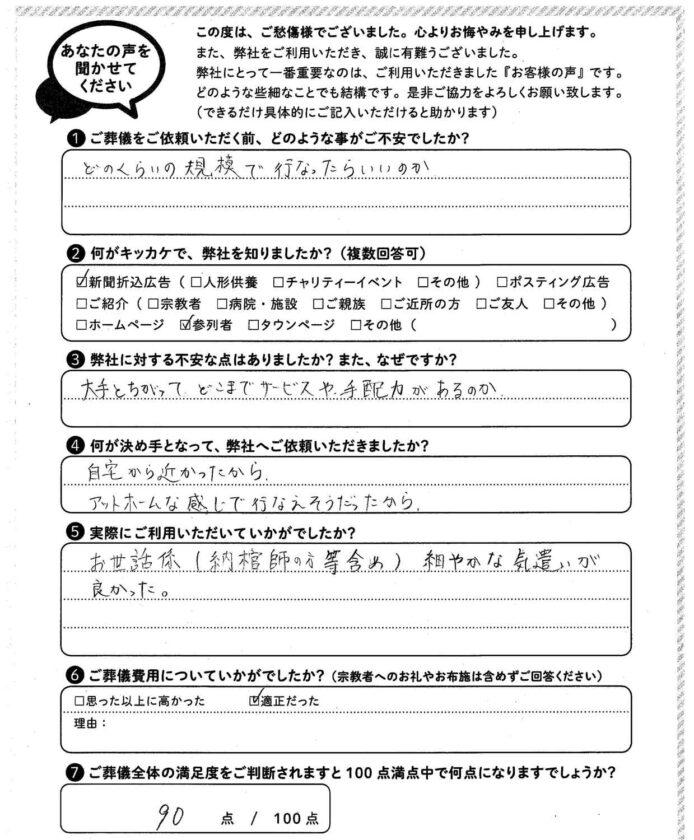 あなたの声を
聞かせて
ください
この度は、ご愁傷様でございました。心よりお悔やみを申し上げます。
また、弊社をご利用いただき、誠に有難うございました。
弊社にとって一番重要なのは、ご利用いただきました『お客様の声』です。
どのような些細なことでも結構です。是非ご協力をよろしくお願い致します。
（できるだけ具体的にご記入いただけると助かります）
❶ ご葬儀をご依頼いただく前、どのような事がご不安でしたか？
どのくらいの規模で行なったらいいのか
❷ 何がキッカケで、弊社を知りましたか？（複数回答可）
☑新聞折込広告（ □人形供養 □チャリティーイベント □その他 ） □ポスティング広告
□ご紹介（ □宗教者 □病院・施設 □ご親族 □ご近所の方 □ご友人 □その他 ）
□ホームページ ☑参列者 □タウンページ □その他（ ）
❸ 弊社に対する不安な点はありましたか？また、なぜですか？
大手とちがって どこまでサービスや、手配力があるのか
❹ 何が決め手となって、弊社へご依頼いただきましたか？
自宅から近かったから.
アットホームな感じで行なえそうだったから.
❺ 実際にご利用いただいていかがでしたか？
お世話係（納棺師の方等含め）細やかな気遣いが
良かった。
❻ ご葬儀費用についていかがでしたか？（宗教者へのお礼やお布施は含めずご回答ください）
□思った以上に高かった ☑適正だった
理由：
❼ ご葬儀全体の満足度をご判断されますと100点満点中で何点になりますでしょうか？
90 点 / 100点